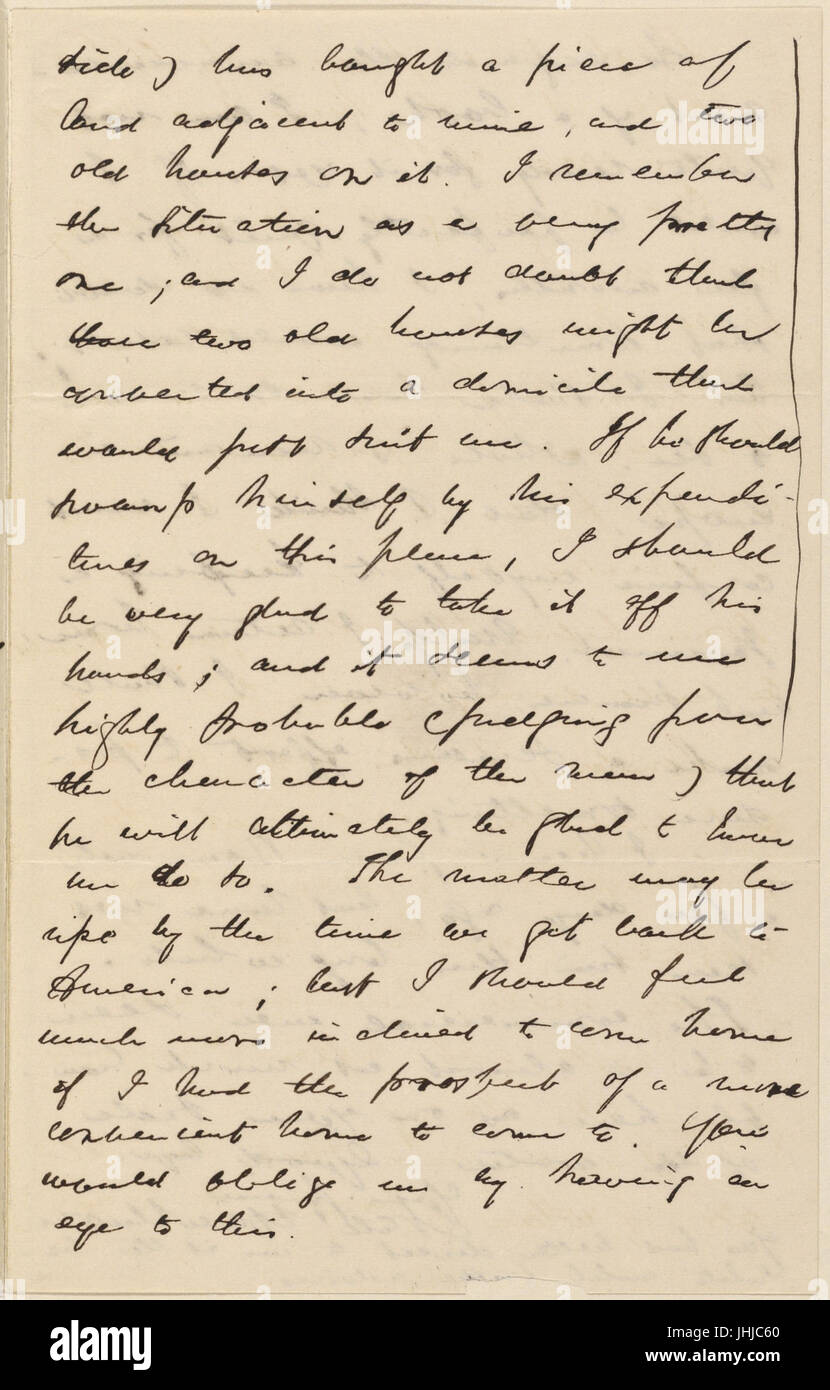 side) has bought a piece of
land adjacent to mine, and two
old houses on it. I remember
the situation as a very pretty
one; and I do not doubt that
two old houses might be
converted into a domicile that
would just suit me. If he should
swamp himself by his expendi-
tures on this place, I should
be very glad to take it off his
hands; and it seems to me
highly probable (judging from
the character of the man) that
he will ultimately be glad to have
me do so. The matter may be
ripe by the time we get back to
America; but I should feel
much more inclined to come home
if I had the prospect of a more
convenient home to come to. You
would oblige me by having an
eye to this.
alamy
alamy stock photo
JHJC60
www.alamy.com